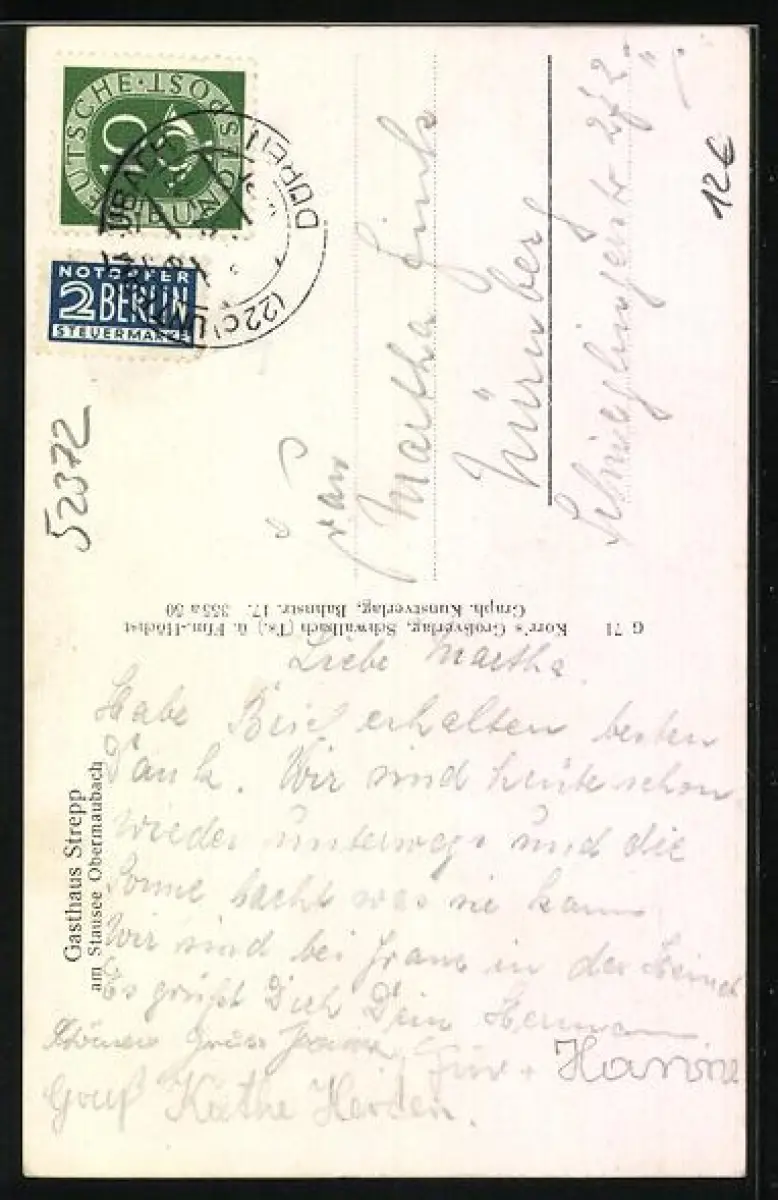 DEUTSCHE·POST
10
DEUTSCHE BUNDESPOST
NOTOPFER
2 BERLIN
STEUERMARKE
(22c) DÜREN
12€
52372
Frau
Martha Finck
Nürnberg
G 71 Korr's Großverlag, Schwalbach (Ts.) ü. Ffm.-Höchst
Graph. Kunstverlag, Bahnstr. 17. 353 a 50
Gasthaus Strepp
am Stausee Obermaubach
Liebe Martha.
Habe Brief erhalten besten
Dank. Wir sind heute schon
wieder unterwegs und die
Sonne lacht was sie kann
Wir sind bei Franz in der
Es grüßt Dich Dein Hermann
Gruss
Hanne
Gruß Käthe